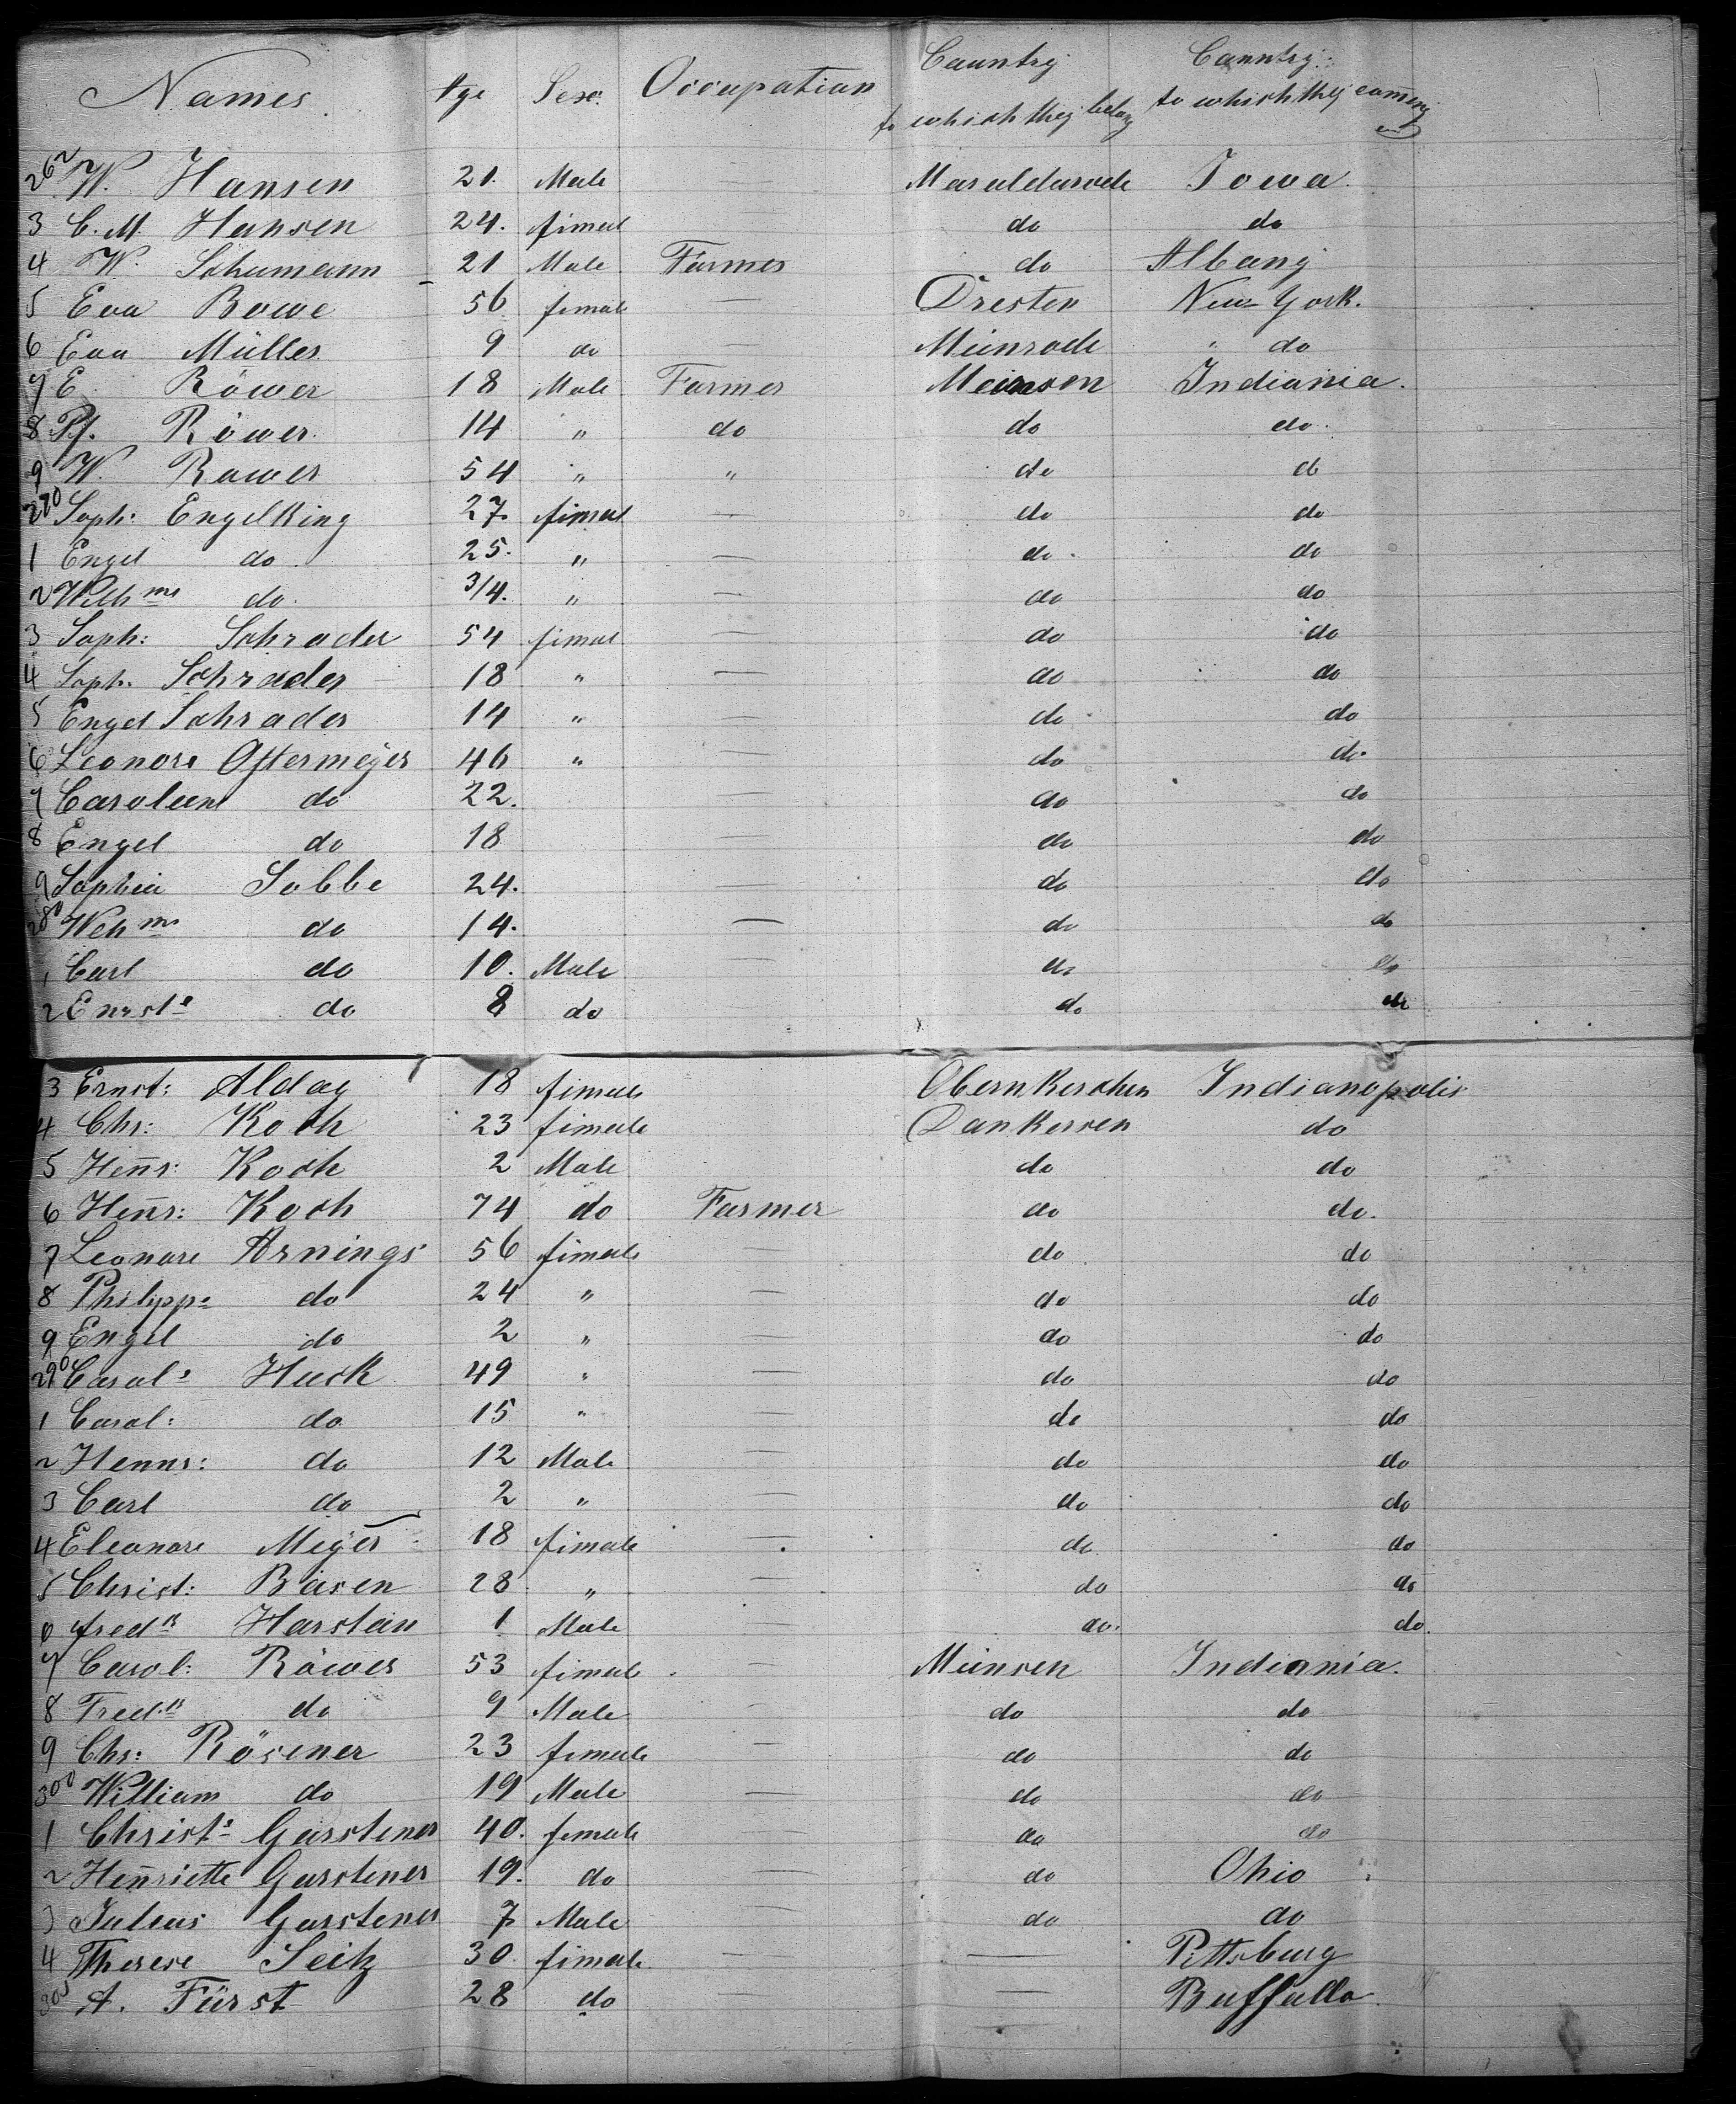 Names Age Sex. Occupation Cauntry to which they belong Canntry: to which they comeing
262 W. Hansen 21. Male Iowa.
3 C. M. Hansen 24. fimal do do
4 W. Schumann 21 Male Farmer do Albany
5 Eva Rowe 56 fimale — Dresten New York.
6 Eva Müller 9 do Meinrode " do
7 E Röwer 18 Male Farmer Meinsen Indiania.
8 Röwer. 14 " do do do.
9 W. Rower 54 " " do do
270 Soph: Engelking 27. fimal — do do
1 Engel do. 25. " — do. do
2 Wilhme do. 3/4. " — do do
3 Soph: Schrader 54 fimal — do do
4 Soph. Schrader 18 " — do do
5 Engel Schrader 14 " — do do
6 Leonore Oftermeÿer 46 " — do do.
7 Carolien do 22. — do do
8 Engel do 18 — do do
9 Sophia Sobbe 24. — do do
280 Wehme do 14. — do do
1 Carl do 10. Male do do
2 do 8 do do do
3 Ernst: Aldag 18 fimale Obernkerchen Indianopolis
4 Chr: Koch 23 fimale Dankersen do
5 Henr: Koch 2 Male do do
6 Henr: Koch 74 do Farmer do do.
7 Leonore Arnings 56 fimale — do do
8 Philippe do 24 " — do do
9 Engel do 2 " do do
290 Carol: Huck 49 " — do do
1 Carol: do 15 " — do do
2 Hennr: do 12 Male — do do
3 Carl do 2 " — do do
4 Eleonore Meÿer 18 fimale — do do
5 Christ: Bäsen 28 " — do do
6 fredk Harstein 1 Male — do. do.
7 Carol: Röwer 53 fimale — Meinsen Indiania.
8 Fredk do 9 Male — do do
9 Chr: Rösener 23 fimale — do do
300 William do 19 Male — do do
1 Christe Garstener 40. fimale do do
2 Henriette Garstener 19. do — do Ohio
3 Julius Garstener 7 Male — do do
4 Therese Seitz 30. fimale — — Pittsburg
305 A. Fürst 28 do — — Buffallo.